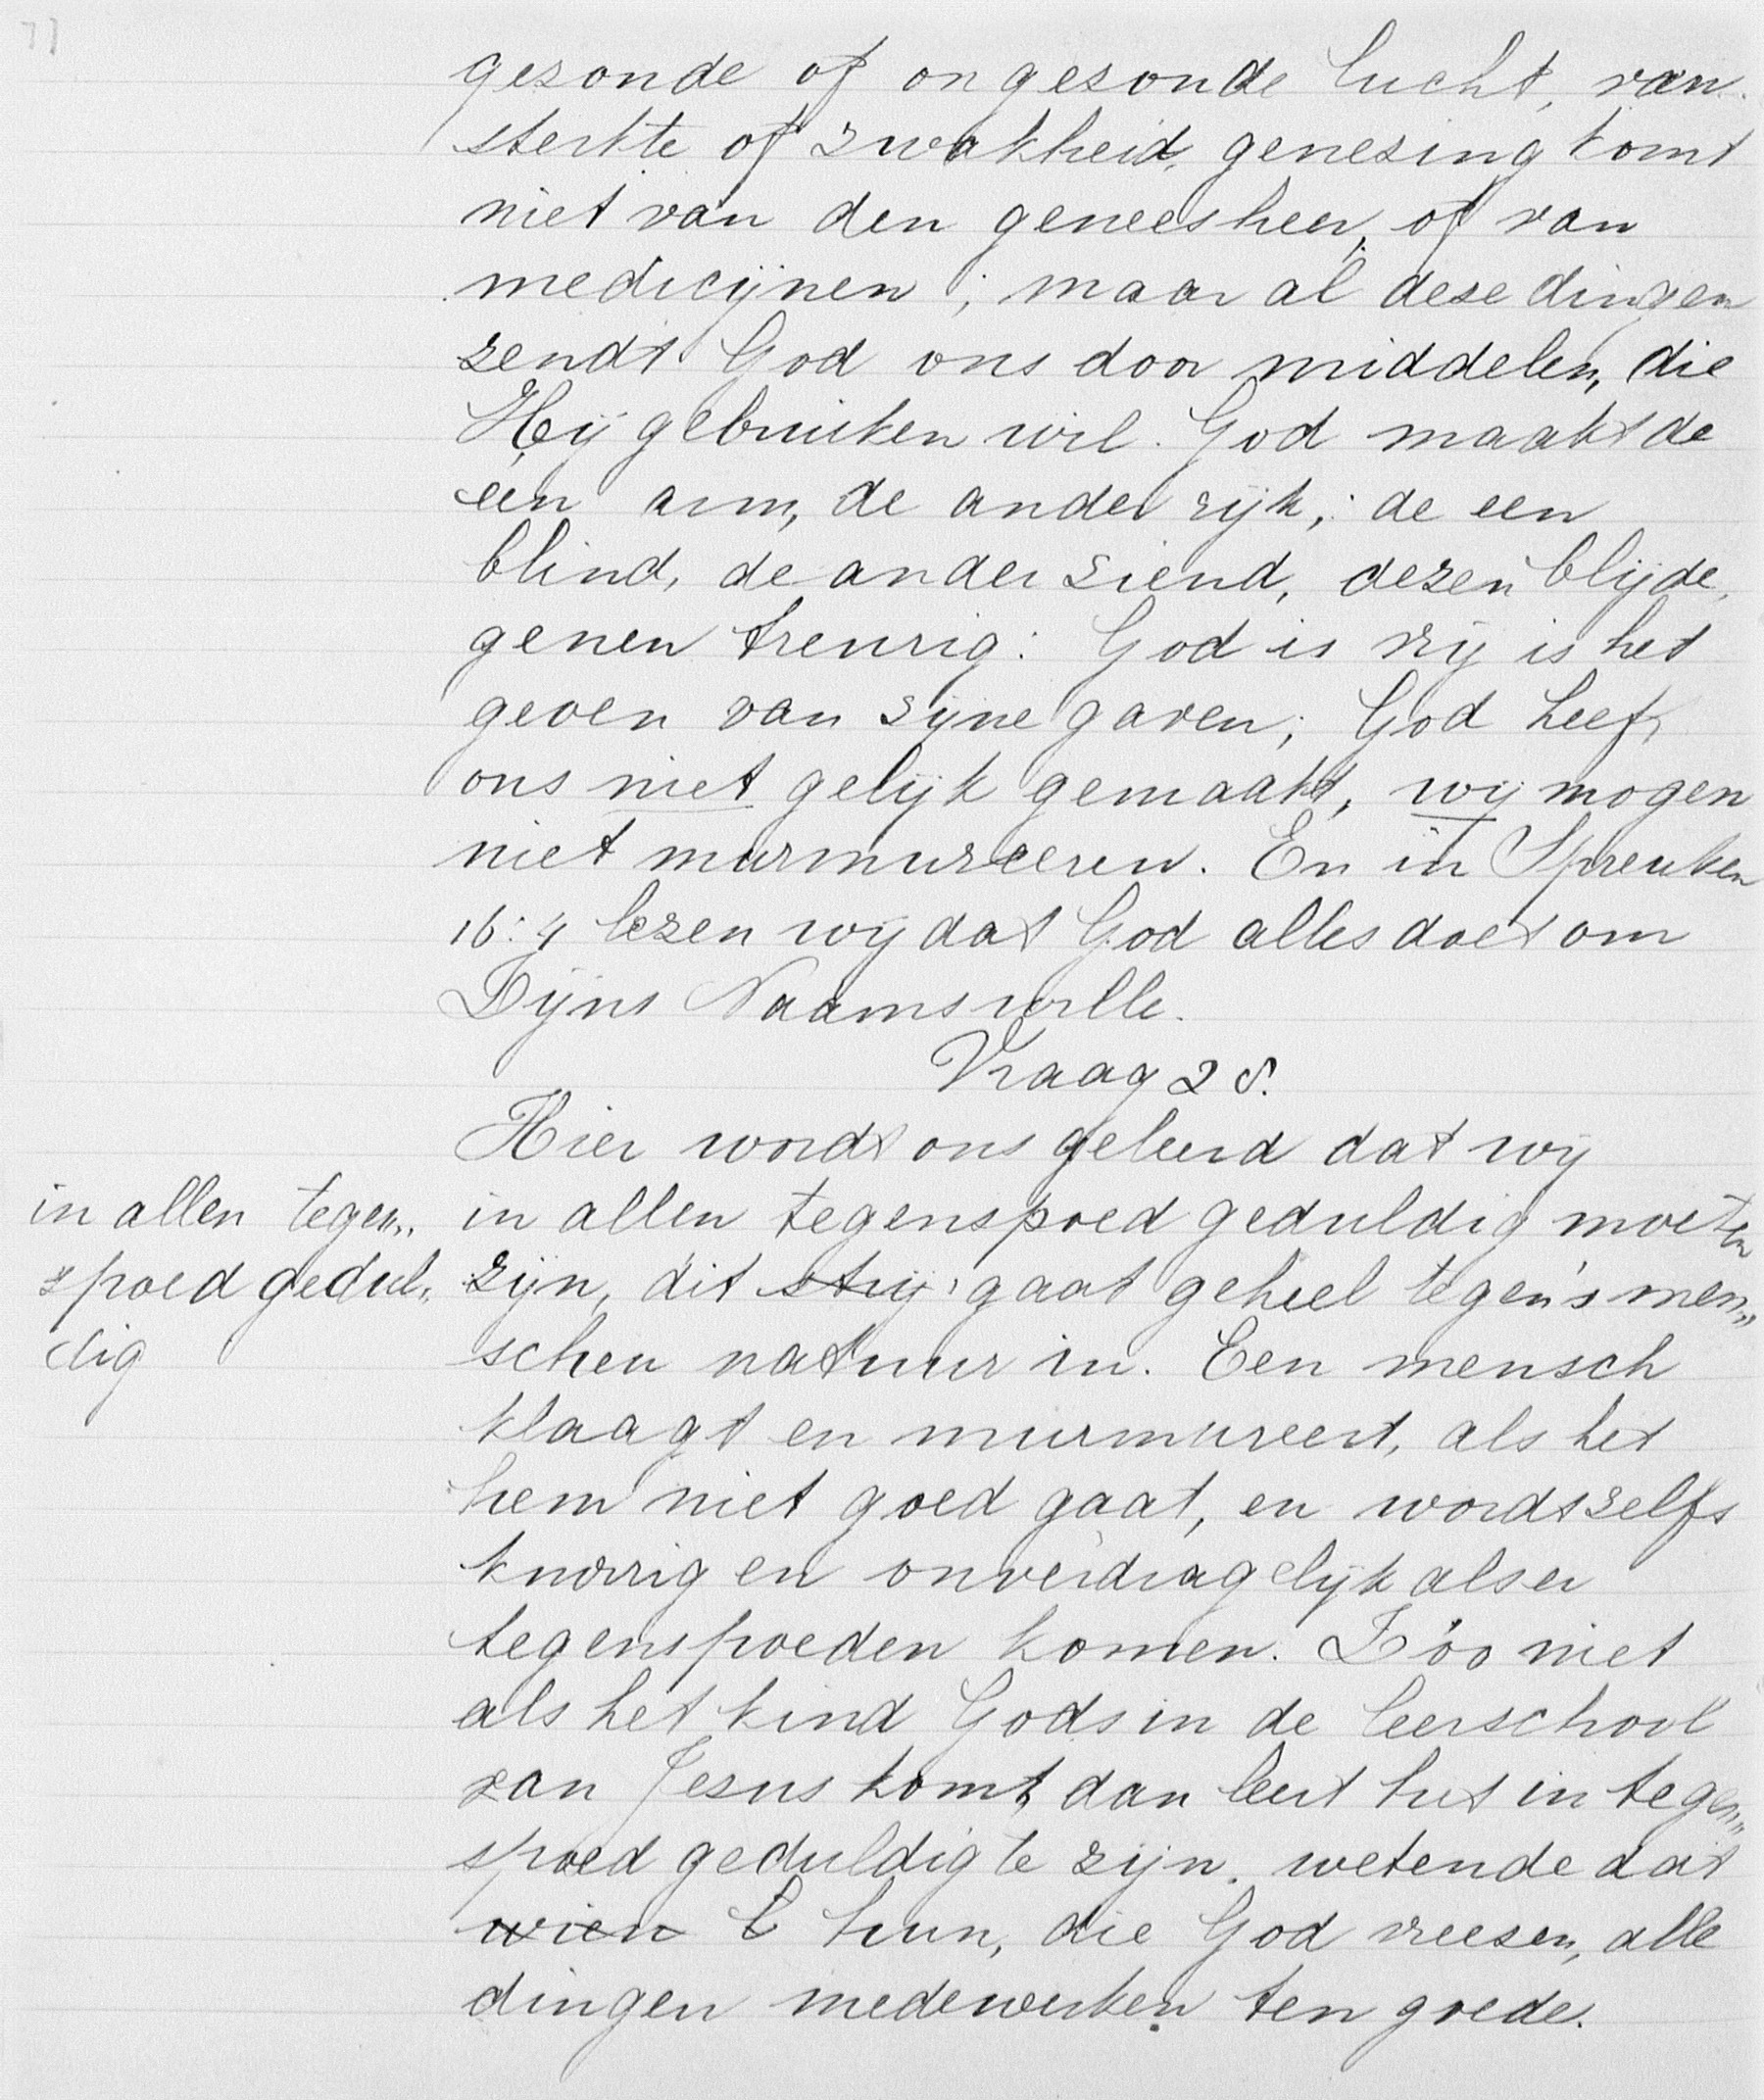 77
gezonde of ongezonde lucht, van
sterkte of zwakheid, genezing komt
niet van den geneesheer, of van
medicijnen; maar al deze dingen
zendt God ons door middelen, die
Hij gebruiken wil. God maakt de
een arm, de ander rijk; de een
blind, de ander ziend, dezen blijde,
genen treurig: God is vrij is het
geven van zijne gaven; God heeft
ons niet gelijk gemaakt, wij mogen
niet murmureeren. En in Spreuken
16:4 lezen wij dat God alles doet om
Zijns Naamswille.
Vraag 28.
Hier wordt ons geleerd dat wij
in allen tegenspoed geduldig moeten
zijn, dit strij gaat geheel tegen 's men„
schen natuur in. Een mensch
klaagt en murmureert, als het
hem niet goed gaat, en wordt zelfs
knorrig en onverdragelijk als er
tegenspoeden komen. Zóó niet
als het kind Gods in de leerschool
van Jesus komt, dan leert het in tegen„
spoed geduldig te zijn, wetende dat
wien t hun, die God vreezen, alle
dingen medewerken ten goede.
in allen tegen„
spoed gedul„
dig